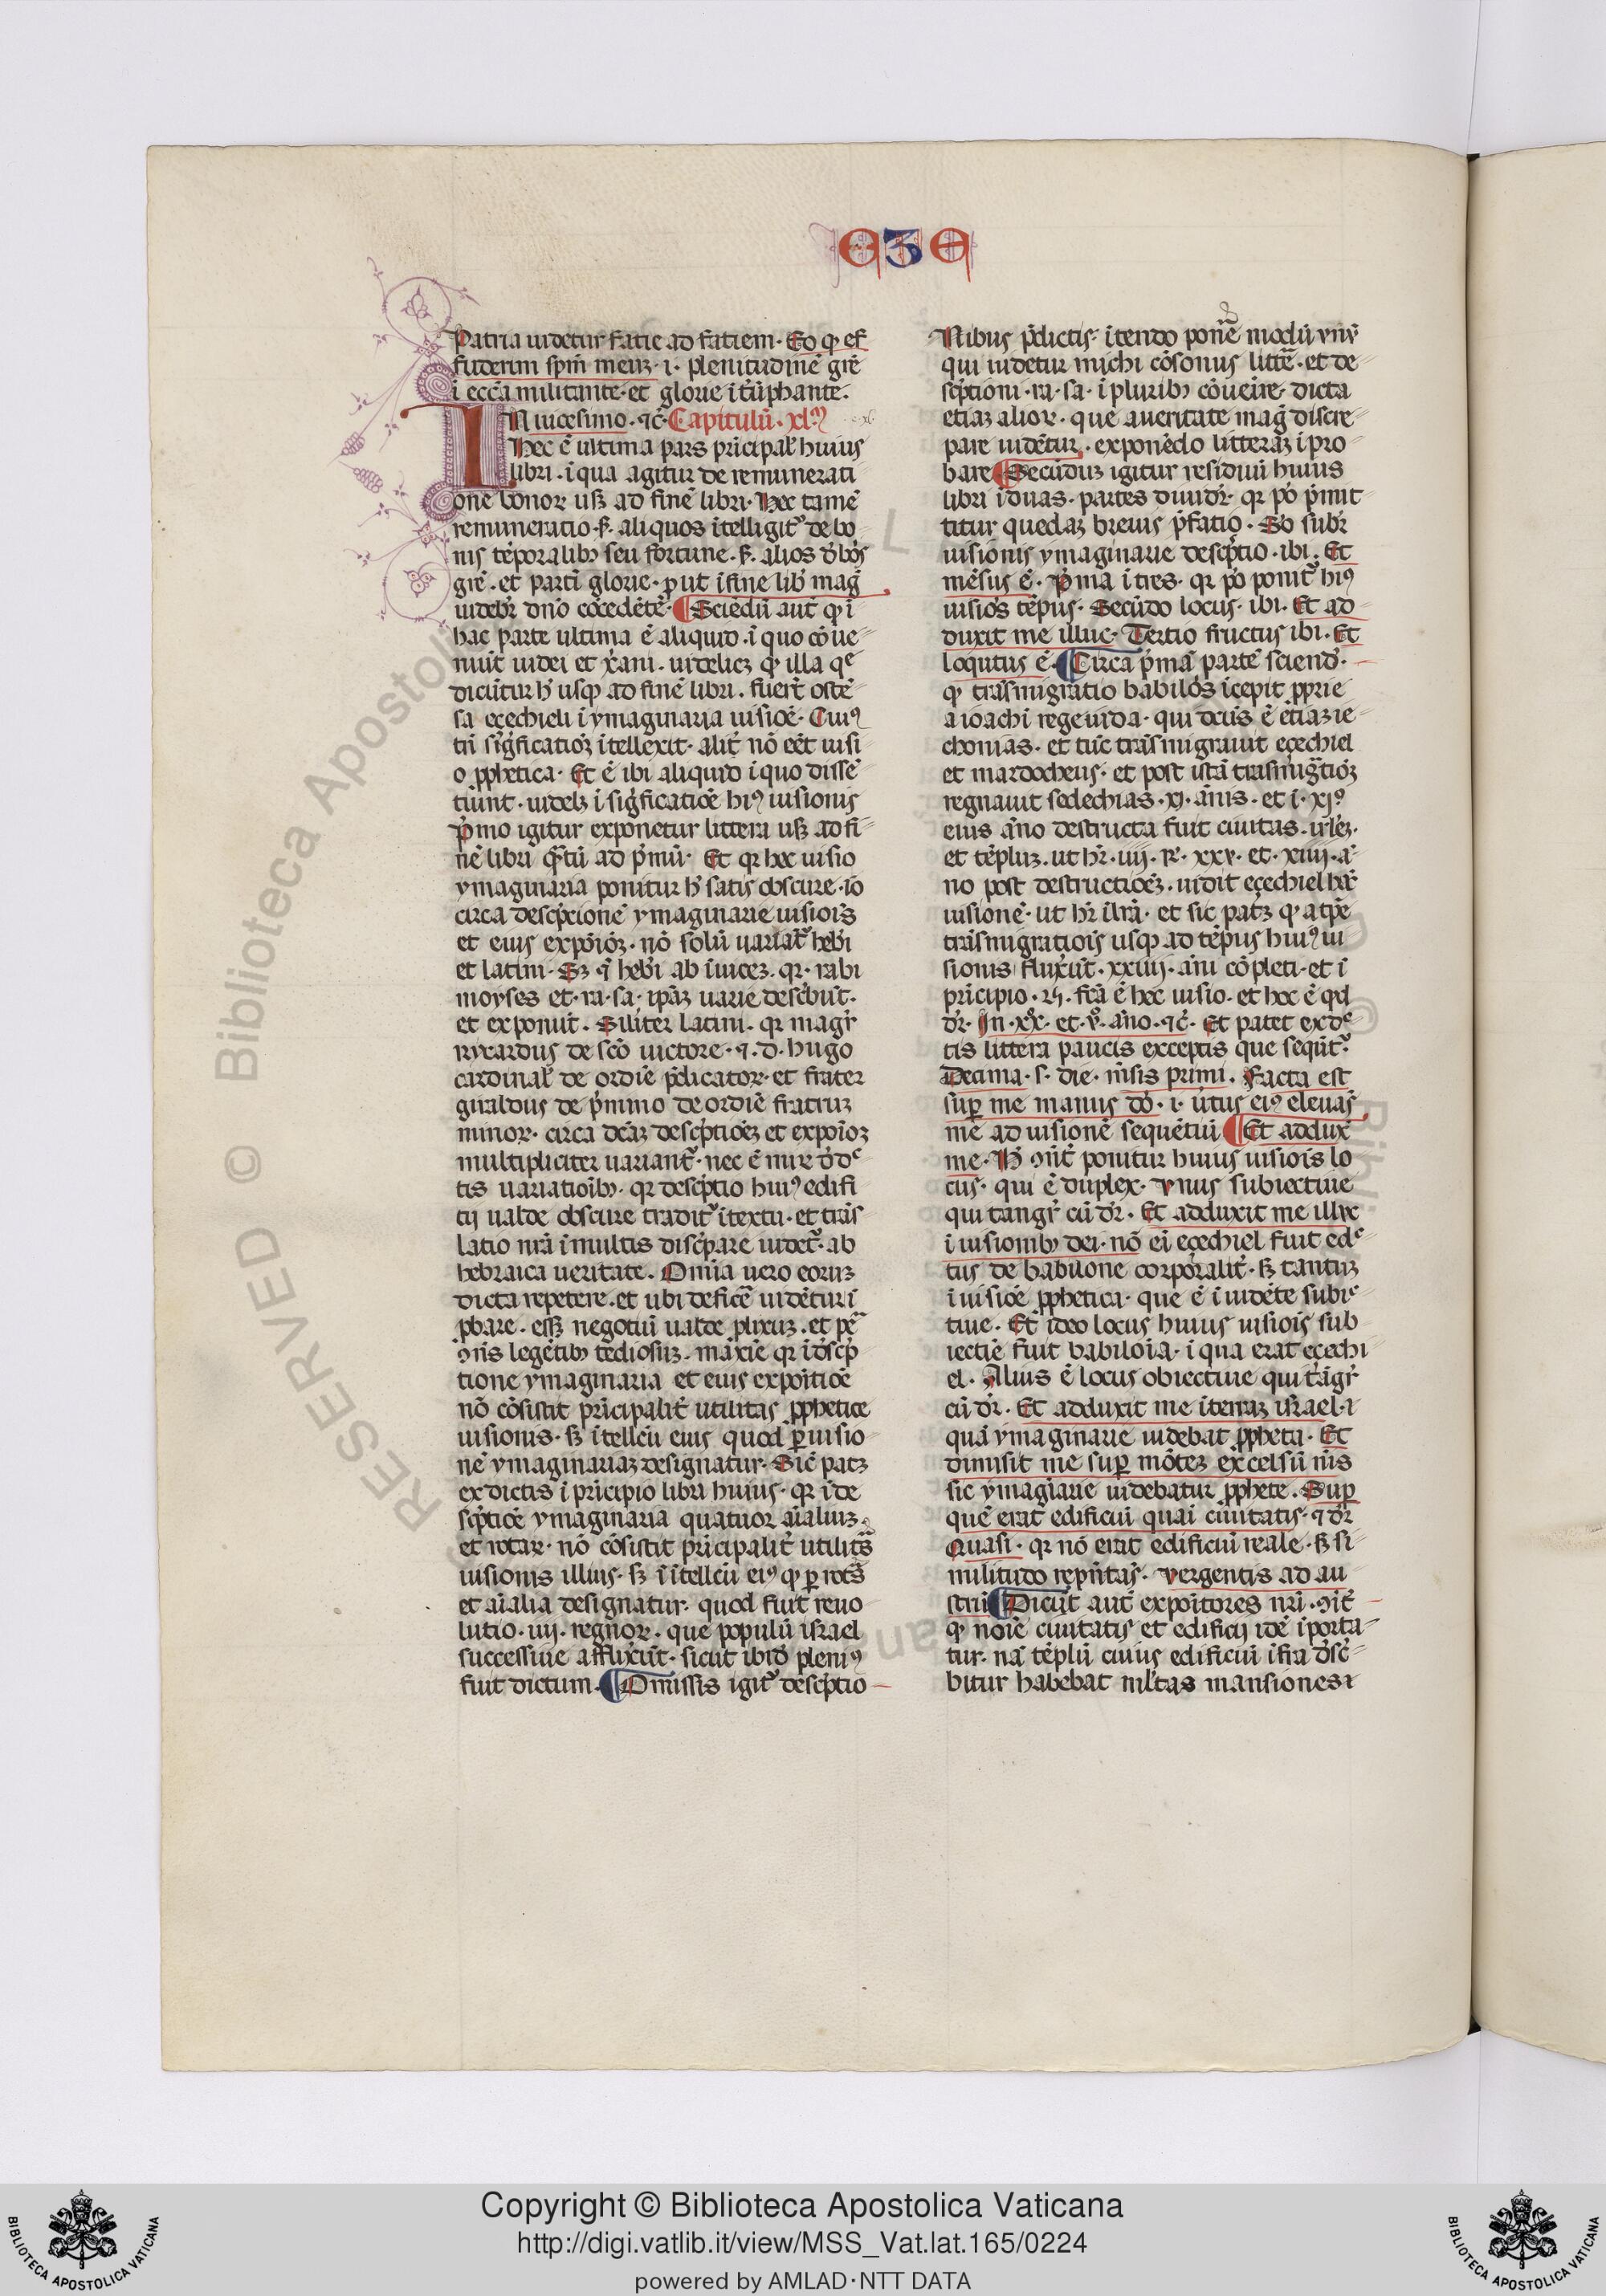 E З E
Patria uidetur facie ad faciem. Eo qͥ ef
fuderim spm̄ meuꝫ .i. plenitudinē grē
ī ecc̄a militante et glorie ī tͥūphante.
IN uicesimo .⁊c̄. Capitulū .xl.ͫ
Hec ē ultima pars pͥncipal̕ huius
libri. ī qua agitur de remunerati
one bonoꝝ usꝫ ad finē libri. Hec tamē
remuneratio. aliquos ītelligitᷣ de bo
nis tēporalibꝫ seu fortune. alios
grē. et parti glorie. ꝓut ī fine libͥ mag̅
uidebr̄ dn̄o cōcedēte. ¶ Sciēdū aut̄ qͥ ī
hac parte ultima ē aliquid. ī quo cōue
niūt iudei et xͥani. uidelicꝫ qͥ illa qͤ
dicūtur hͥ usqꝫ ad finē libri. fuer̄t ostē
sa eçechieli ī ymaginaria uisiōe. Cuiꝰ
tn̄ sigͥficatiōꝫ ītellexit. alit̕ nō eēt uisi
o ꝓphetica. Et ē ibi aliquid ī quo dissē
tiunt. uidelꝫ ī sigͥficatiōe hiꝰ uisionis
pͥmo igitur exponetur littera usꝫ ad fi
nē libri qͣtū ad pͥmū. Et qꝛ hec uisio
ymaginaria ponitur hͥ satis obscure. iō
circa descͥpcionē ymaginarie uisioīs
et eius expōiōꝫ. nō solū uariātᷣ hebͥi
et latini. Sꝫ ⁊ hebͥi ab īuiceꝫ. qꝛ. rabi
moyses et. ra. sa. ipāꝫ uarie descͥbūt.
et exponūt. Siliter latini. qꝛ magͬ
rycardus de scō uictore. ⁊. d. hugo
cardinal̕ de ordīe pͥdicatoꝝ. et frater
gualdus de de ordīe fratruꝫ
minoꝝ. circa dc̄aꝫ descͥptiōeꝫ et expoīoꝫ
multipliciter uariantᷣ. nec ē mirͫ dͥ dͤ
tis uariatioībꝫ. qꝛ descͥptio huiꝰ edifi
cij ualde obscure traditᷣ ī textu. et trās
latio nrā ī multis discͥpare uidetᷣ. ab
hebraica ueritate. Omīa uero eoruꝫ
dicta repetere. et ubi deficē uidētur ī
ꝓbare. essꝫ negotiū ualde ꝓlixuꝫ. et
legētibꝫ tediosuꝫ. maxīe qꝛ ī dͥscͥp
tione ymaginaria et eius expoītiōe
nō cōsistit pͥncipalit̕ utilitas ꝓphetice
uisionis. sꝫ ī ītellc̄u eius quod ꝑ uisio
nē ymaginariaꝫ designatur. Sic̄ patꝫ
ex dictis ī pͥncipio libri huius. qꝛ ī de
scͥptiōe ymaginaria quatuor aīaliuꝫ
et rotaꝝ. nō cōsistit pͥncipalit̕ utilitās
uisionis illius. sꝫ ī ītellc̄u eiꝰ qͥ ꝑ rotās
et aīalia designatur. quod fuit reuo
lutio .iiij. regnoꝝ. que populū israel
successiue afflixer̄t. sicut ibidͫ pleniꝰ
fuit dictum. ¶ Omissis igitᷣ descͥptio
Nibus pͥdictis. ītendo ponē modū
qui uidetur michi cōsonus litte̅. et de
scͥptioni. ra. sa. ī pluribꝫ cōueīre. dicta
etiaꝫ alioꝝ. que a ueritate mag̅ discre
pare uidētur. exponēdo litteraꝫ ī pro
bare. ¶ Secūduꝫ igitur residuū huius
libri ī duas. partes diuidr̄. qꝛ pͥo pͥmit
titur quedaꝫ breuis pͥfatio. Sͦ subr̄
uisionis ymaginarie descͥptio. ibi. Et
mēsus ē. Pͥma ī tres. qꝛ pͥo ponitᷣ hiꝰ
uisiōis tēpus. Secūdo locus. ibi. Et ad
duxit me illuc. Tertio fructus ibi. Et
loqutus ē. ¶ Circa pͥmā partē sciend̄.
qͥ trāsmigratio babilōs īcepit ꝓprie
a ioachī rege iuda. qui dc̄us ē etiaꝫ ie
chonias. et tūc trāsmigrauit eçechiel
et mardocheus. et post istā trāsmigͣtiōꝫ
regnauit sedechias .xi. ānis. et ī .xiͦ.
eius āno destructa fuit ciuitas. irlēꝫ.
et tēpluꝫ. ut hr̄ .iiij. R̄. xxv. et .xiiij. ā
no post destructiōeꝫ. uidit eçechiel hāc
uisionē. ut hr̄ ī lrā. et sic patꝫ qͥ a tpͤ
trāsmigratiois usqꝫ ad tēpus huiꝰ ui
sionis fluxer̄t .xxiiij. āni cōpleti. et ī
pͥncipio .25. fcā ē hec uisio. et hoc ē qd̕
dr̄. In .xxͦ. et .vͦ. āno .⁊c̄. Et patet ex dͤ
tis littera paucis exceptis que sequūtᷣ.
Decima. s. die. mēsis primi. Facta est
suꝑ me manus dō. i. uͥtus eiꝰ eleuās
me ad uisionē sequētiū ¶ Et addux̄
me. Hͥ ꝯn̄t̕ ponitur huius uisioīs lo
cus. qui ē duplex. Vnus subiectiue
qui tangr̄ cū dr̄. Et adduxit me illuc
ī uisionibꝫ dei. nō eī eçechiel fuit edͤ
tus de babilone corporalit̕. sꝫ tantuꝫ
ī uisiōe ꝓphetica. que ē ī uidēte subiͤ
tiue. Et ideo locus huius uisioīs sub
iectie fuit babiloīa. ī qua erat eçechi
el. Alius ē locus obiectiue qui tāgr̄
cū dr̄. Et adduxit me ī terraꝫ israel. ī
quā ymaginarie uidebat ꝓpheta. Et
dimisit me suꝑ mōteꝫ excelsū nīs
sic ymagīarie uidebatur ꝓphete. Suꝑ
quē erat edificiū quaī ciuitatis. ⁊ dr̄
Quasi. qꝛ nō erat edificiū reale. sꝫ si
militudo rep̄n̄tās. Vergentis ad au
strū ¶ Dicūt aut̄ expoītores nrī. ꝯit̕
qͥ noīe ciuitatis et edificij idē īporta
tur. nā tēplū cuius edificiū īfra dͥscͥ
bitur habebat ml̕tas mansiones ⁊
Copyright © Biblioteca Apostolica Vaticana
http://digi.vatlib.it/view/MSS_Vat.lat.165/0224
powered by AMLAD·NTT DATA
BIBLIOTECA APOSTOLICA VATICANA
BIBLIOTECA APOSTOLICA VATICANA